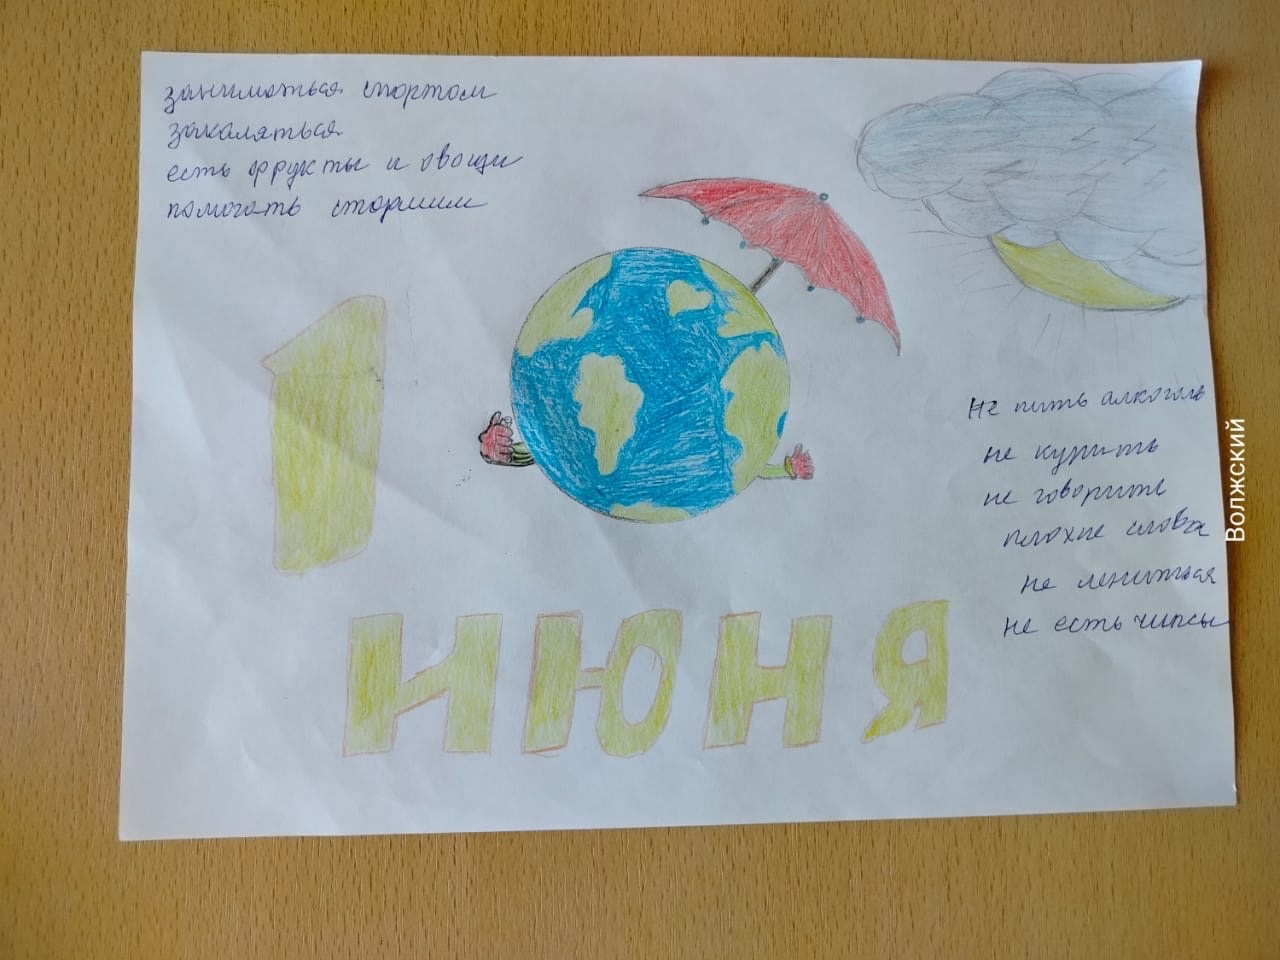 заниматься спортом
закаляться
есть фрукты и овощи
помогать старшим
1
ИЮНЯ
Не пить алкоголь
не курить
не говорить
плохие слова
не лениться
не есть чипсы
Волжский